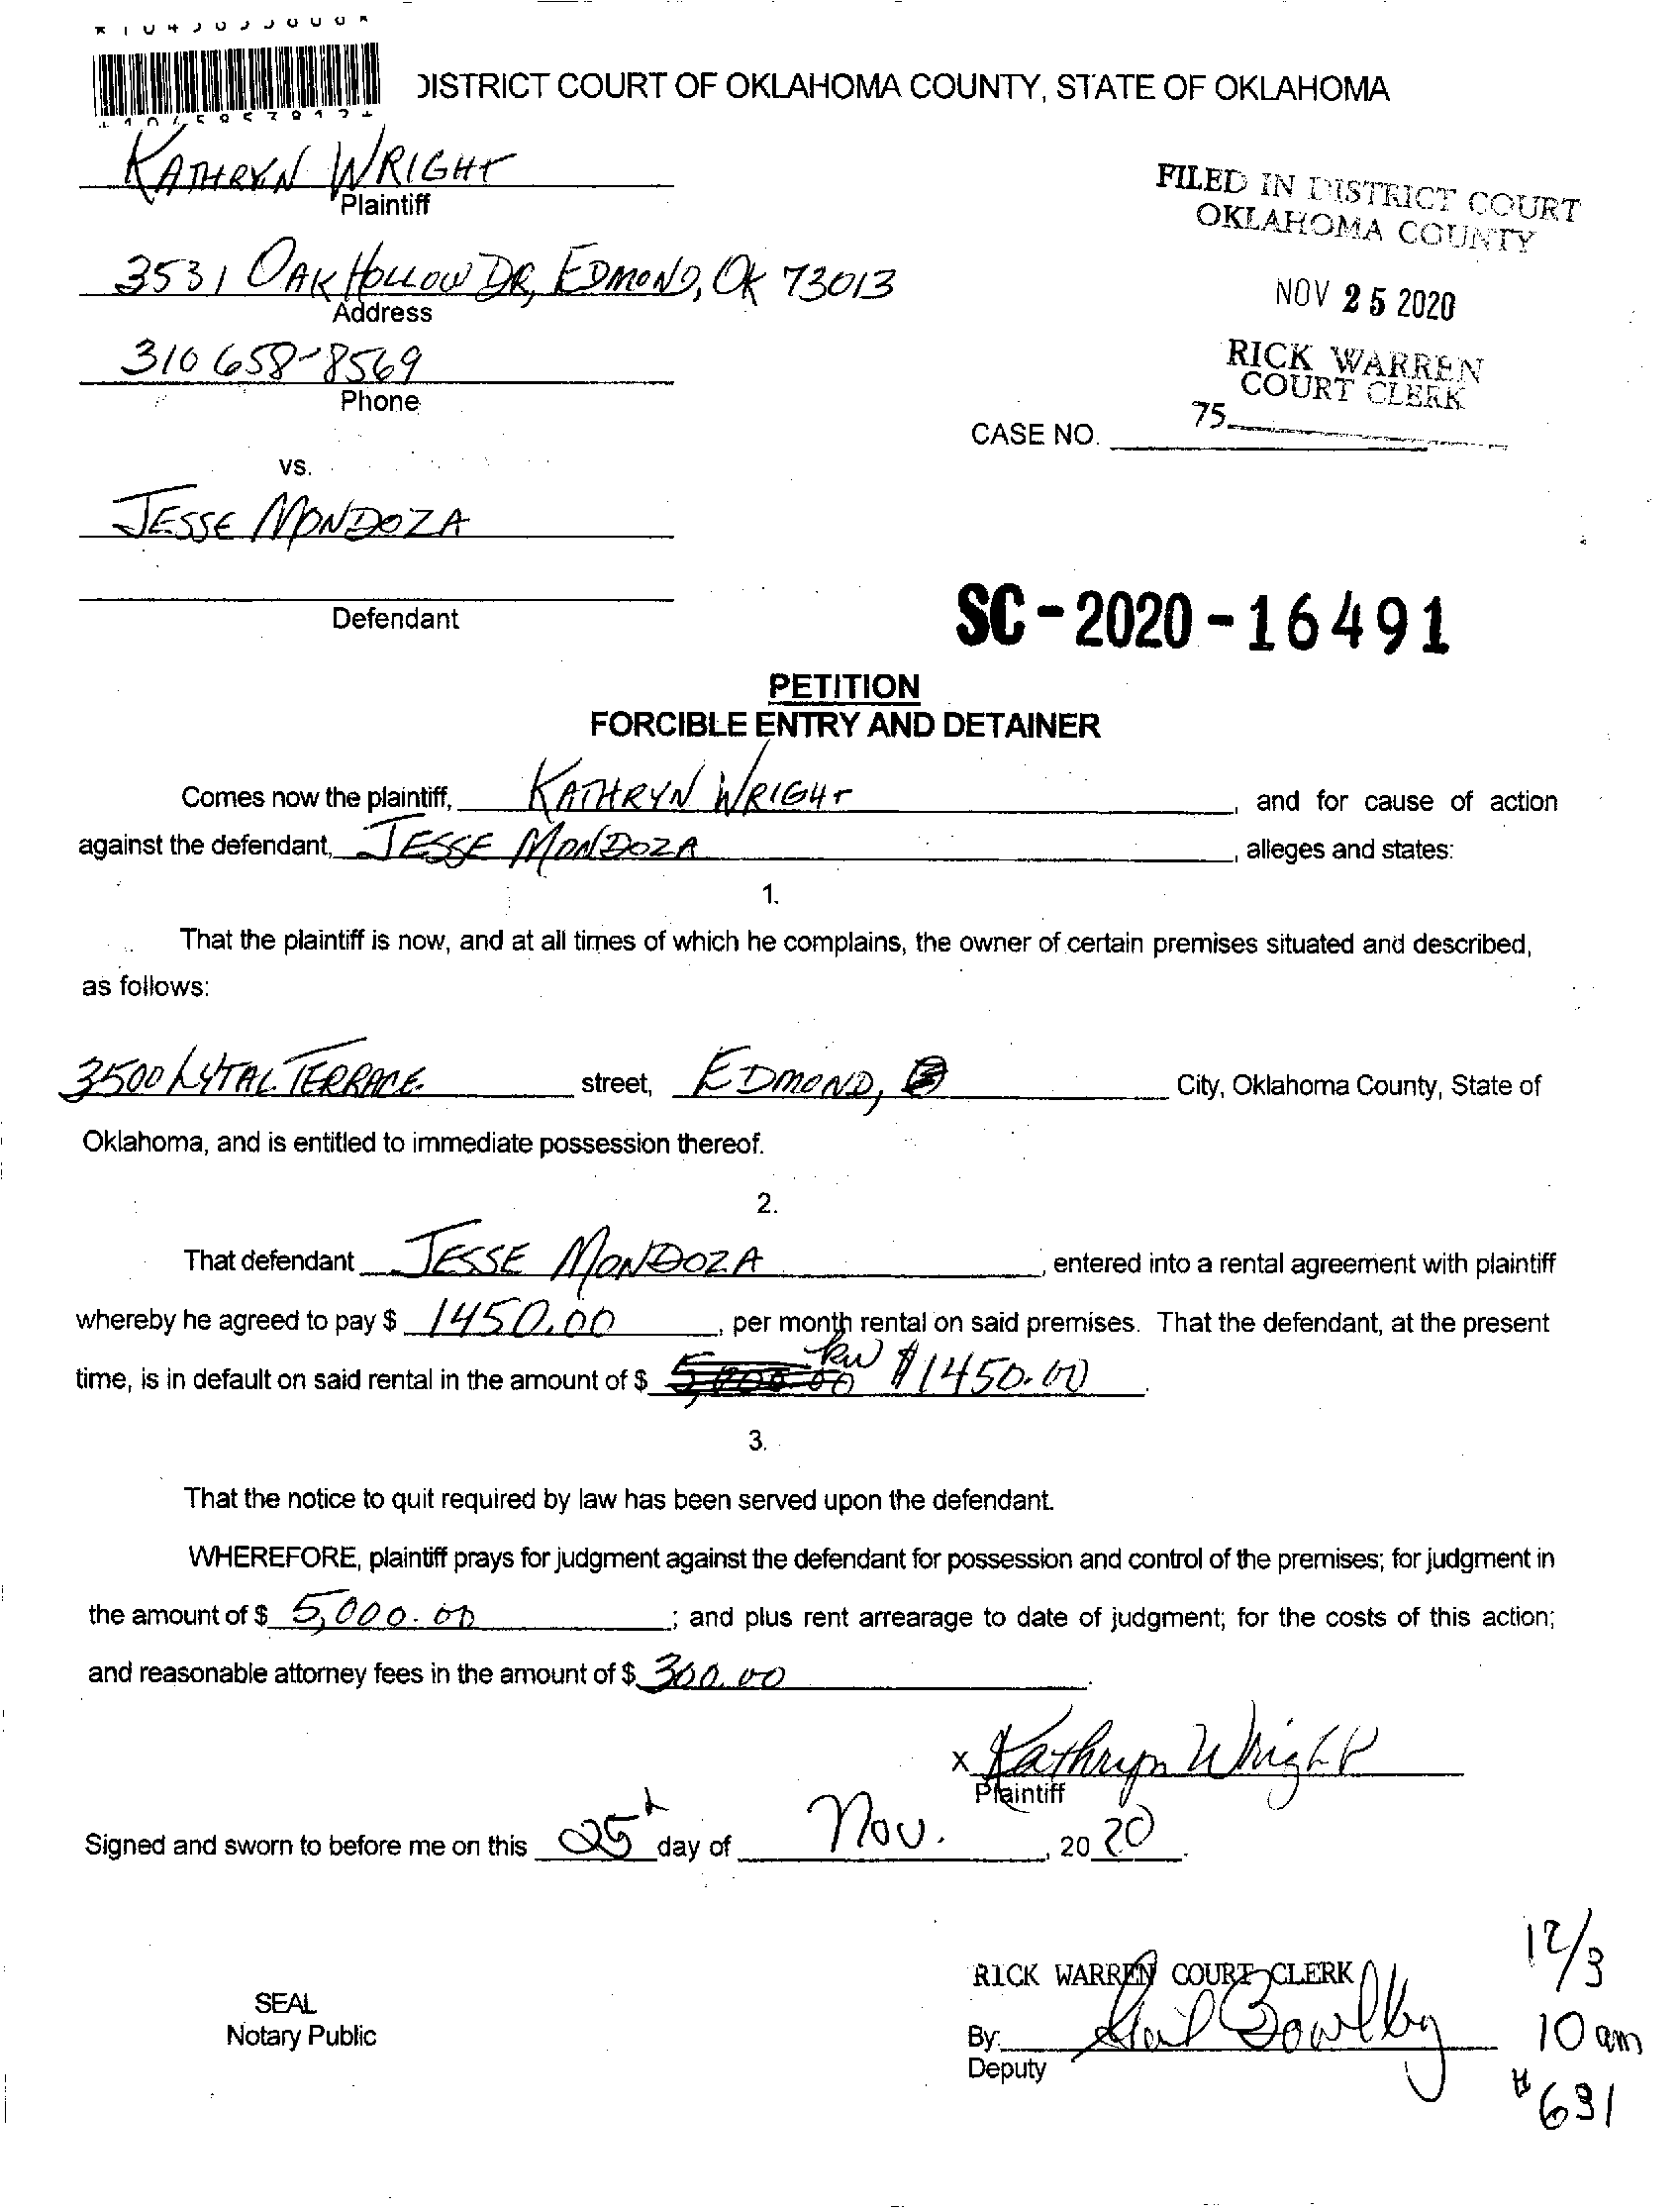 DISTRICT COURT OF OKLAHOMA COUNTY, STATE OF OKLAHOMA
KATHRYN WRIGHT
Plaintiff
FILED IN DISTRICT COURT
OKLAHOMA COUNTY
3531 OAK HOLLOW DR, EDMOND, OK 73013
Address
NOV 25 2020
310 658-8569
Phone
RICK WARREN
COURT CLERK
75
CASE NO.
vs.
JESSE MONDOZA
Defendant
SC-2020-16491
PETITION
FORCIBLE ENTRY AND DETAINER
Comes now the plaintiff, KATHRYN WRIGHT, and for cause of action
against the defendant, JESSE MONDOZA, alleges and states:
1.
That the plaintiff is now, and at all times of which he complains, the owner of certain premises situated and described,
as follows:
3500 LYTAL TERRACE street, EDMOND, City, Oklahoma County, State of
Oklahoma, and is entitled to immediate possession thereof.
2.
That defendant JESSE MONDOZA, entered into a rental agreement with plaintiff
whereby he agreed to pay $ 1450.00, per month rental on said premises. That the defendant, at the present
time, is in default on said rental in the amount of $ 5,000.00 KW $1450.00.
3.
That the notice to quit required by law has been served upon the defendant.
WHEREFORE, plaintiff prays for judgment against the defendant for possession and control of the premises; for judgment in
the amount of $ 5,000.00; and plus rent arrearage to date of judgment; for the costs of this action;
and reasonable attorney fees in the amount of $ 300.00.
x Kathryn Wright
Plaintiff
Signed and sworn to before me on this 25th day of Nov., 2020.
RICK WARREN COURT CLERK
SEAL
Notary Public
By: Gail Bowlby
Deputy
12/3
10 am
#631